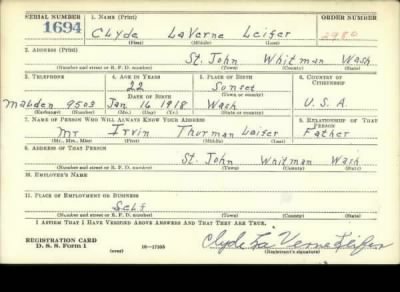 SERIAL NUMBER 1. NAME (Print) ORDER NUMBER
1694 Clyde LaVerne Leifer 2980
(First) (Middle) (Last)
2. ADDRESS (Print)
St. John Whitman Wash
(Number and street or R. F. D. number) (Town) (County) (State)
3. TELEPHONE 4. AGE IN YEARS 5. PLACE OF BIRTH 6. COUNTRY OF CITIZENSHIP
22 Sunset
DATE OF BIRTH (Town or county)
9503 Jan 16 1918 Wash U.S.A.
(Exchange) (Number) (Mo.) (Day) (Yr.) (State or country)
7. NAME OF PERSON WHO WILL ALWAYS KNOW YOUR ADDRESS 8. RELATIONSHIP OF THAT PERSON
Mr Irvin Thurman Leifer Father
(Mr., Mrs., Miss) (First) (Middle) (Last)
9. ADDRESS OF THAT PERSON
St. John Whitman Wash
(Number and street or R. F. D. number) (Town) (County) (State)
10. EMPLOYER'S NAME
11. PLACE OF EMPLOYMENT OR BUSINESS
Self
(Number and street or R. F. D. number) (Town) (County) (State)
I AFFIRM THAT I HAVE VERIFIED ABOVE ANSWERS AND THAT THEY ARE TRUE.
REGISTRATION CARD
D. S. S. Form 1 (over) 16—17105
Clyde La Verne Leifer
(Registrant's signature)